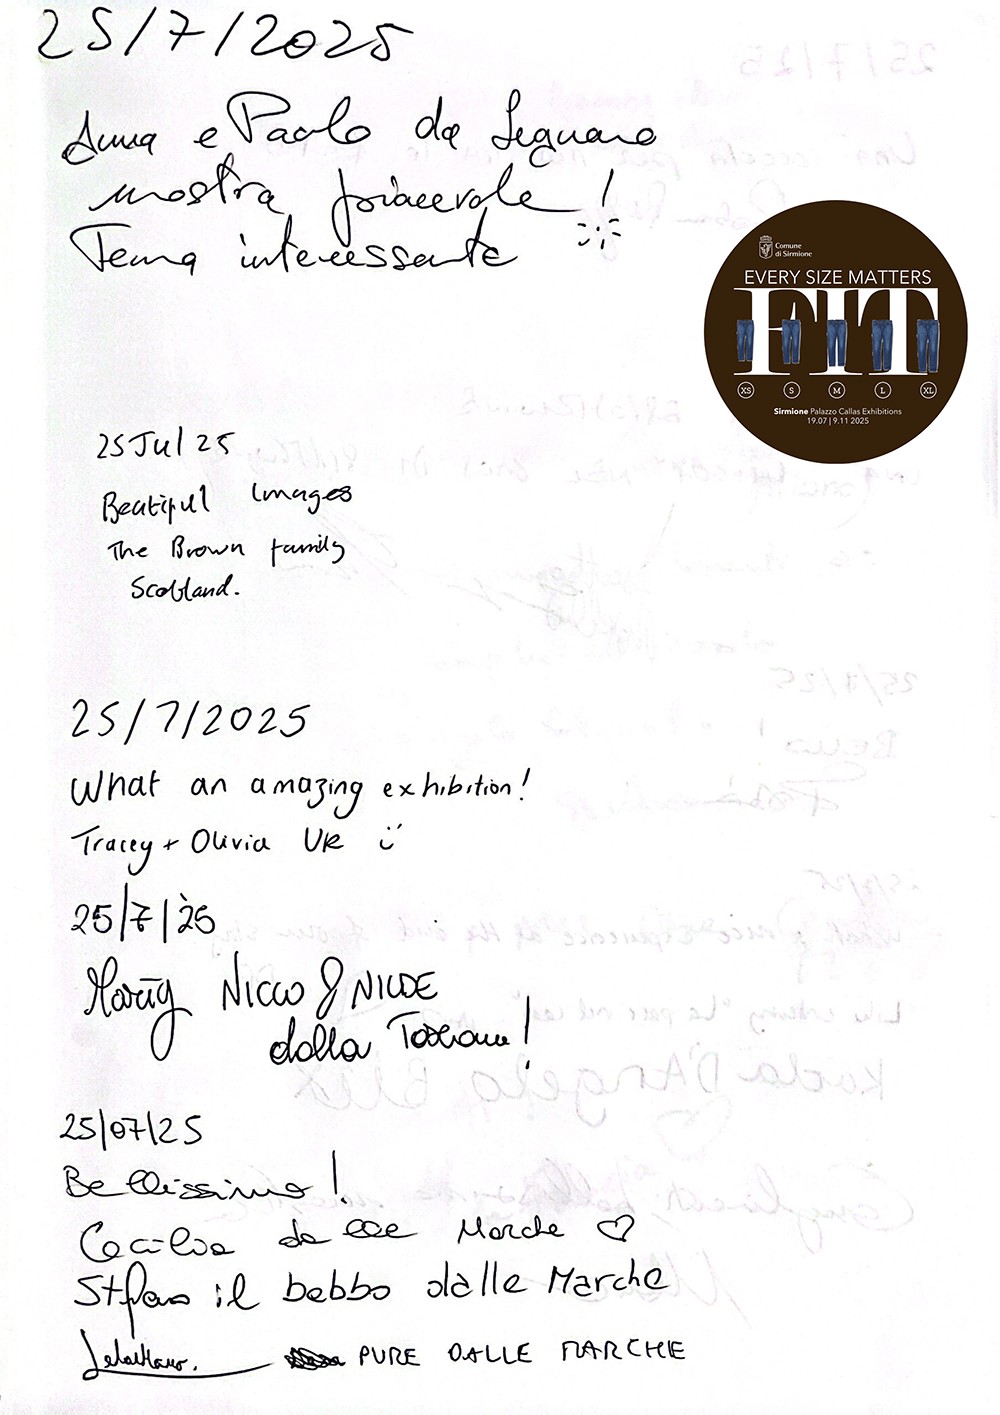 25/7/2025
Anna e Paolo da Legnano
mostra piacevole!
Tema interessante
Comune
di Sirmione
EVERY SIZE MATTERS
FIT
XS S M L XL
Sirmione Palazzo Callas Exhibitions
19.07 | 9.11 2025
25 Jul 25
Beatiful Images
The Brown family
Scotland.
25/7/2025
What an amazing exhibition!
Tracey + Olivia UK
25/7/25
NICCO & NILDE
dalla Toscana!
25/07/25
Bellissima!
Cecilia dalle Marche ♡
Stefano il babbo dalle Marche
PURE DALLE MARCHE